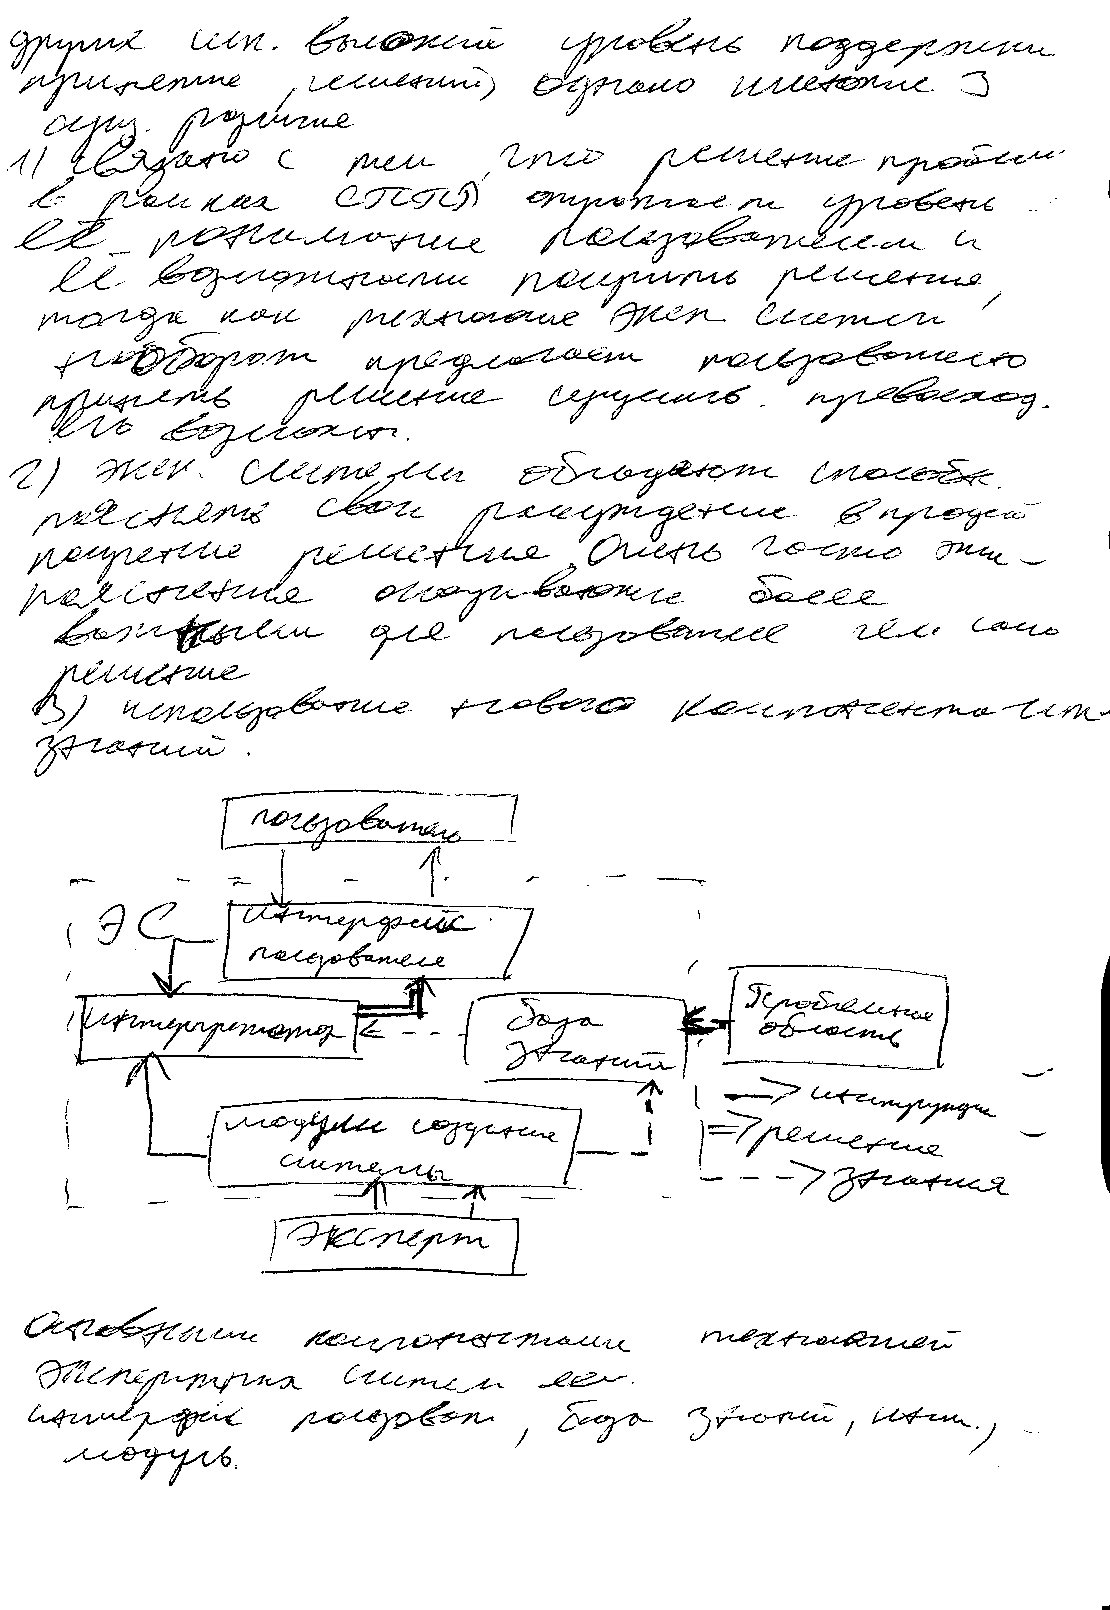 других инт. высокий уровень поддержки
принятие решений, однако имеются 3
сущ. различие
1) Связано с тем, что решение проблем
в рамках СППР отражает уровень
её понимание пользователем и
её возможности получить решение,
тогда как технология экс систем,
наоборот предлагает пользователю
принять решение превосход.
его возможн.
2) экс. системы обладают способн.
пояснять свои рассуждение в процессе
получение решение. Очень часто эти
пояснение оказываются более
важными для пользователя чем само
решение
3) использование нового компонента
знаний.
пользователь
ЭС
Интерфейс
пользователя
Интерпретатор
База
знаний
Проблемная
область
Модуль создание
системы
Эксперт
инструкции
решение
знания
Основными компонентами технологией
экспертных систем
интерфейс пользоват, база знаний, инт.,
модуль.